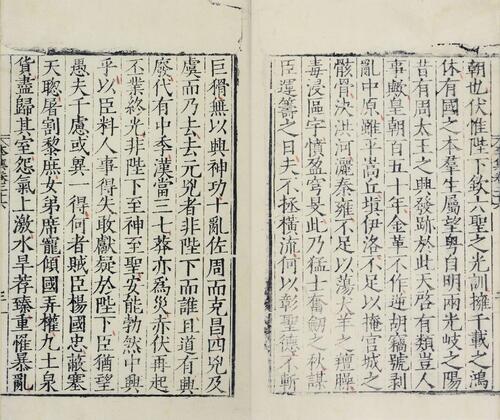 朝也伏惟陛下欽六聖之光訓擁千載之鴻
休有國之本羣生屬望粵自明兩光岐之陽
昔有周太王之興發跡於此天啓有類豈人
事歟皇朝百五十年金革不作逆胡竊號剝
亂中原雖平嵩丘塡伊洛不足以掩宮城之
骸骨決洪河灑秦雍不足以蕩犬羊之羶臊
毒浸區宇憤盈穹旻此乃猛士奮劒之秋謀
臣運籌之日夫不拯橫流何以彰聖德不斬
巨猾無以興神功十亂佐周而克昌四凶及
虞而乃去去元兇者非陛下而誰且道有興
廢代有中季漢當三七莽亦爲災赤伏再起
丕業終光非陛下至神至聖安能勃然中興
乎以臣料人事得失敢獻疑於陛下臣猶望
愚夫千慮或異一得何者賊臣楊國忠蔽塞
天聰屠割黎庶女弟席寵傾國弄權九土泉
貨盡歸其室怨氣上激水旱荐臻重惟暴亂